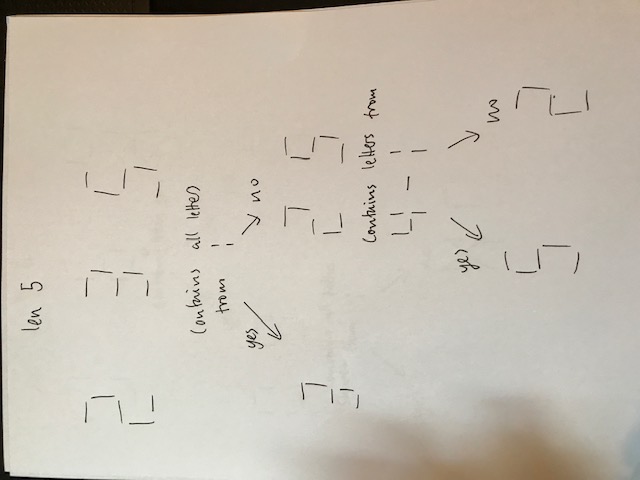 len 5
2 3 5
Contains all letters
from 1
yes no
3 2 5
Contains letters from
4 - 1
yes no
5 2